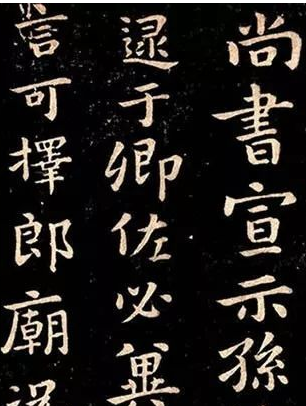 尚書宣示孫
逮于卿佐必冀
言可擇郎廟